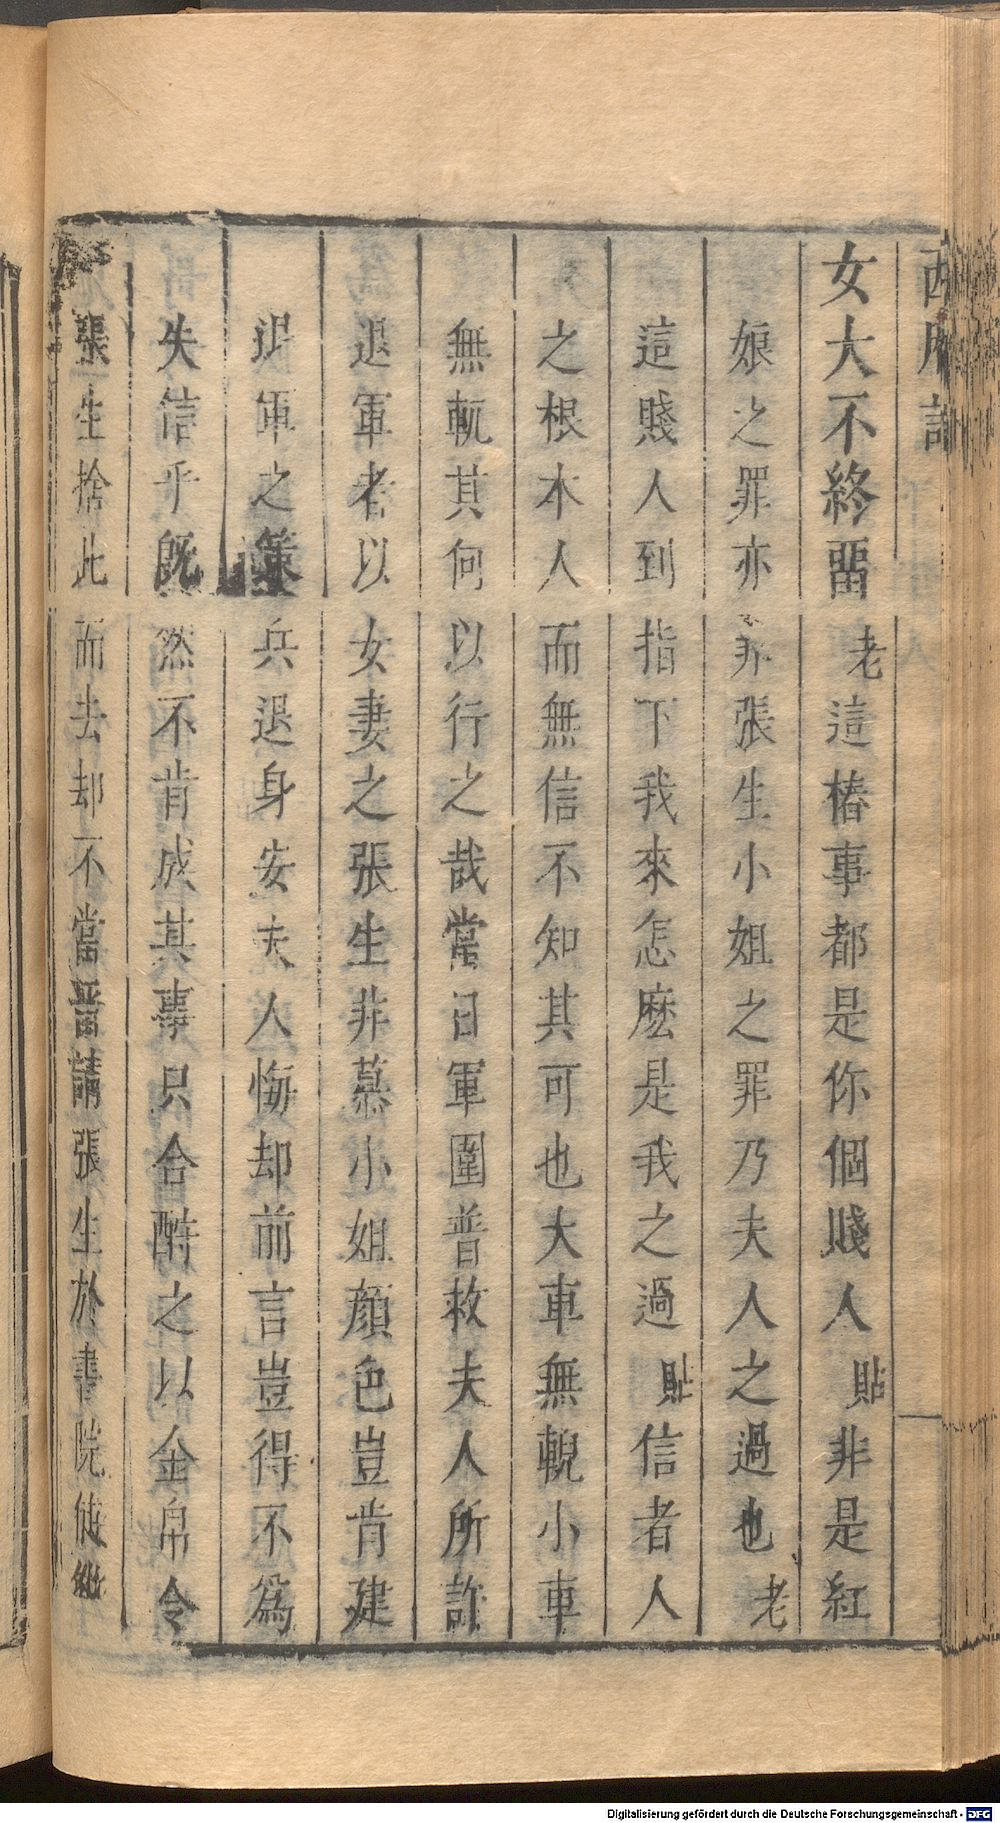 西廂記
女大不終畱老這樁事都是你個賤人貼非是紅
娘之罪亦非張生小姐之罪乃夫人之過也老
這賤人到指下我來怎麽是我之過貼信者人
之根本人而無信不知其可也大車無輗小車
無軏其何以行之哉當日軍圍普救夫人所許
退軍者以女妻之張生非慕小姐顔色豈肯建
退軍之策兵退身安夫人悔却前言豈得不爲
失信乎旣然不肯成其事只合酧之以金帛令
張生捨此而去却不當畱請張生於書院使
Digitalisierung gefördert durch die Deutsche Forschungsgemeinschaft - DFG